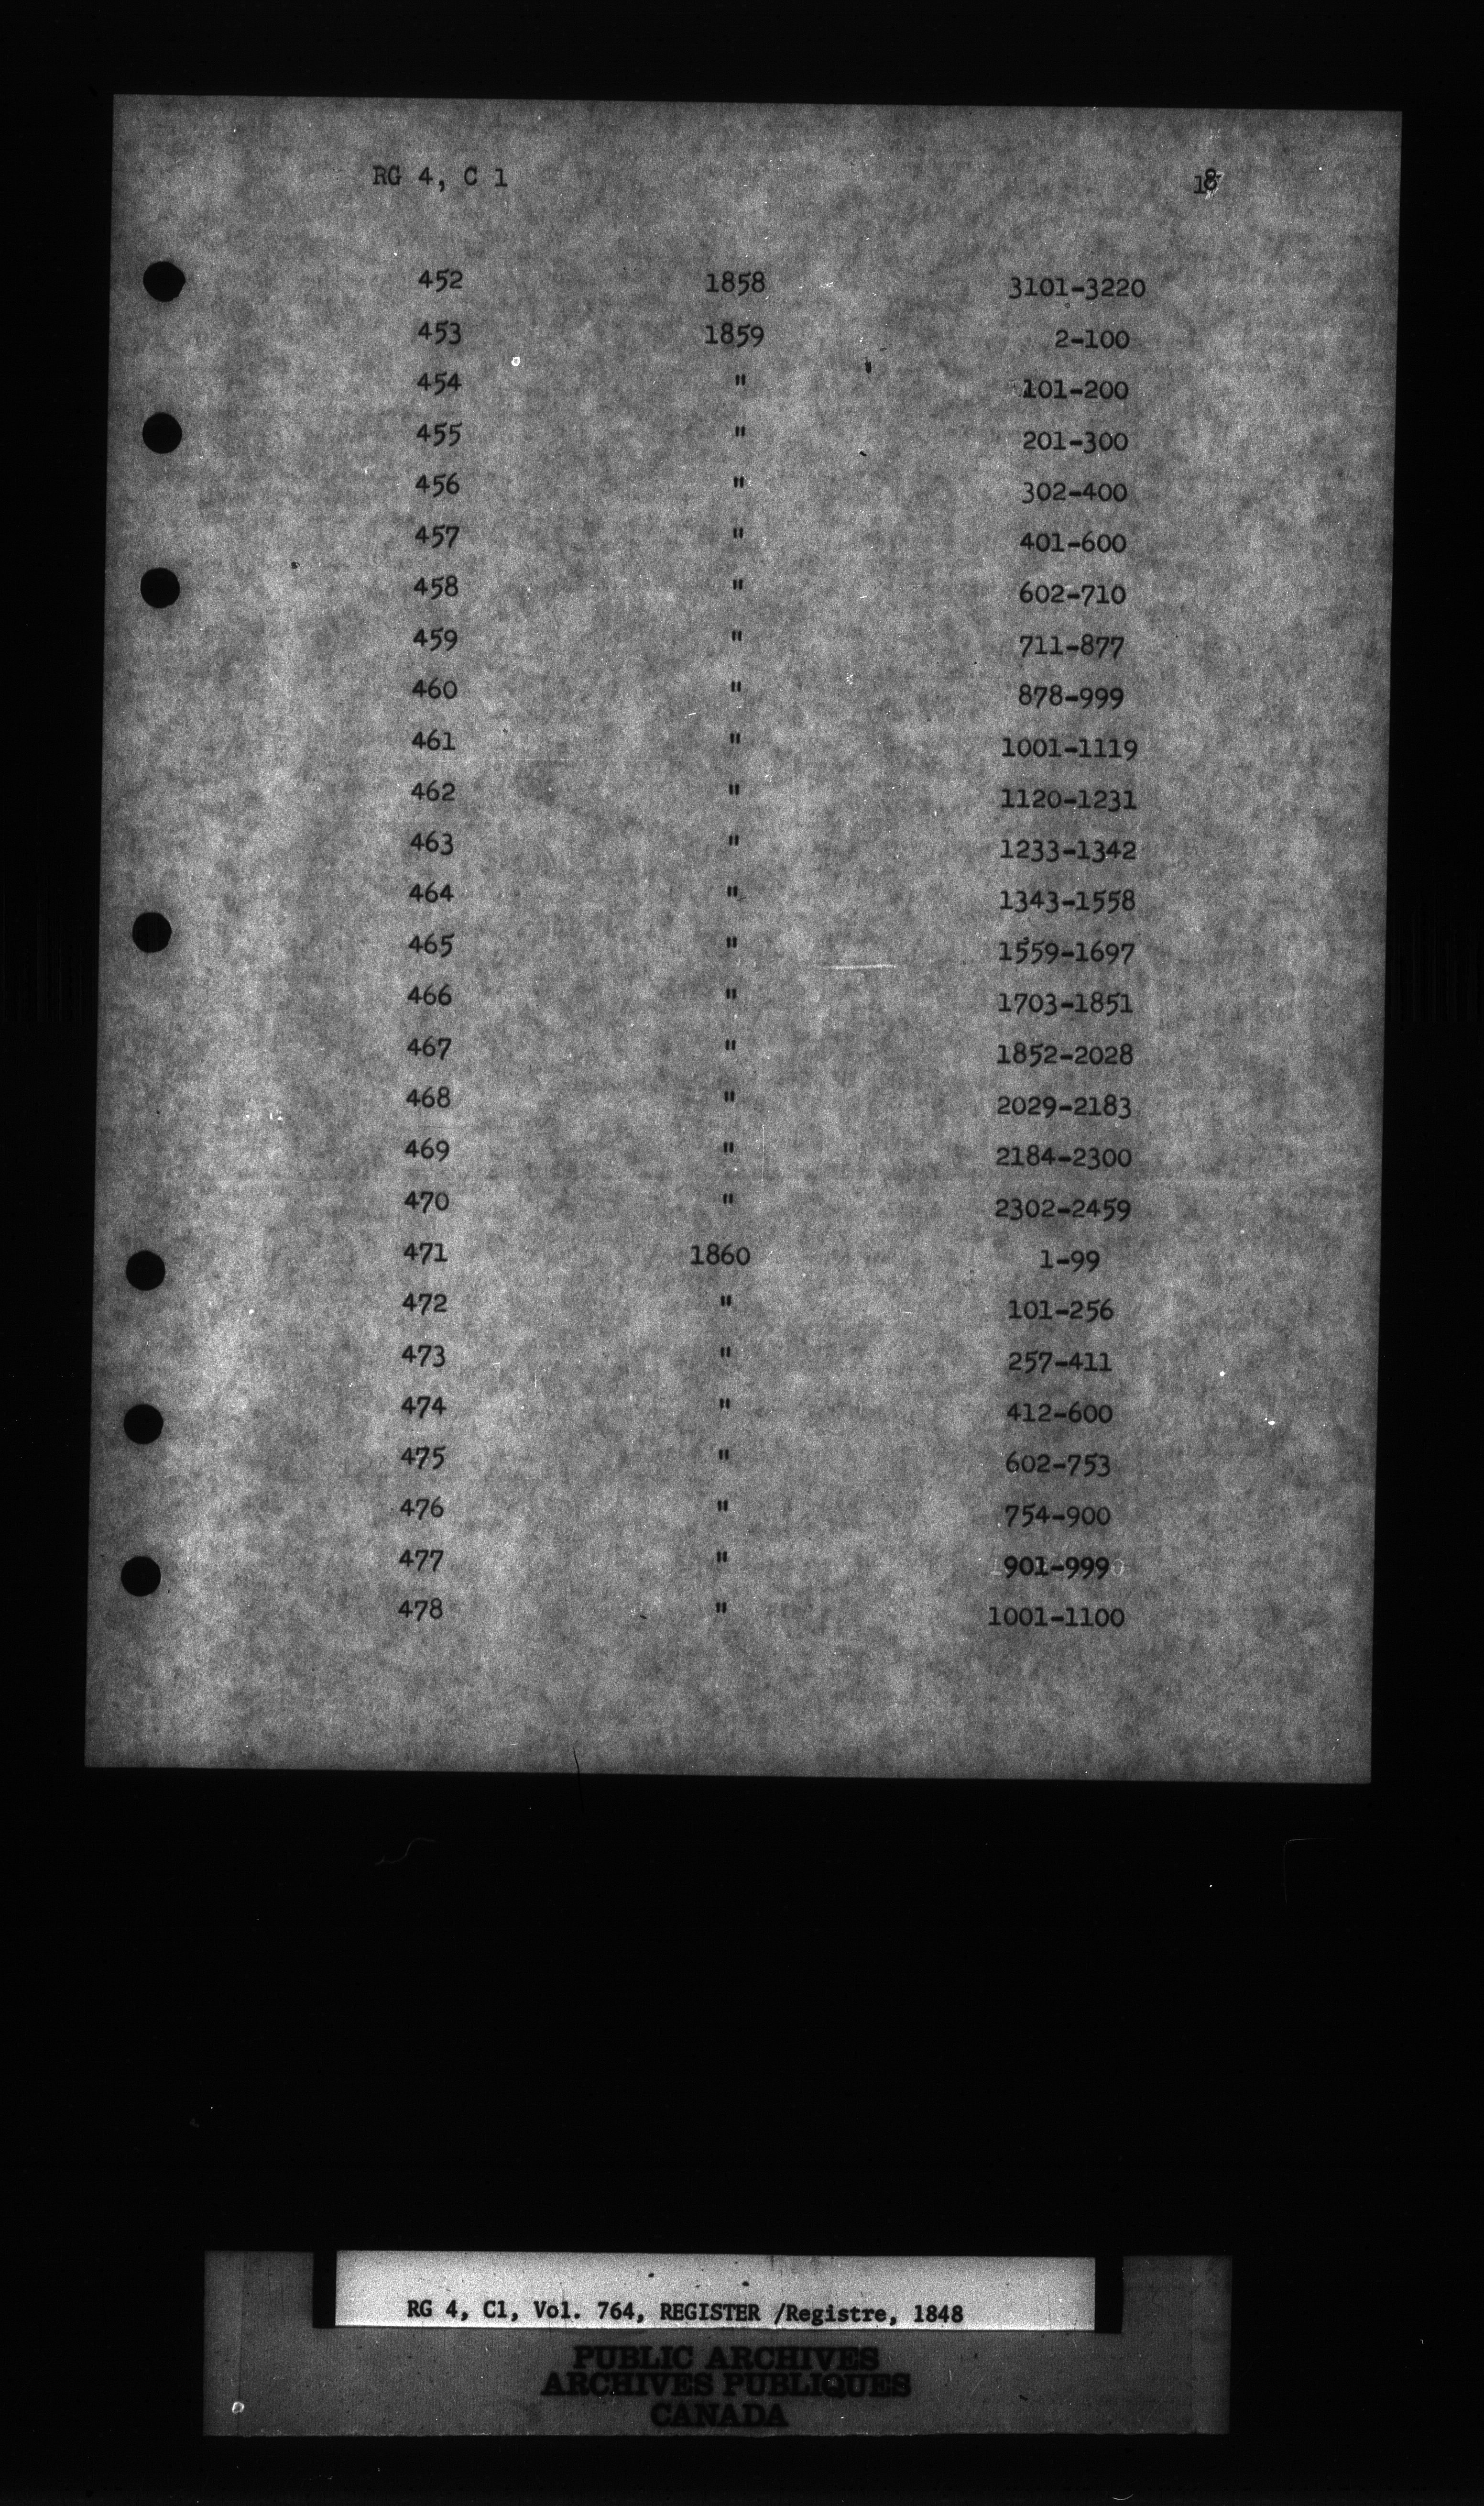 RG 4, C 1 18
452 1858 3101-3220
453 1859 2-100
454 " 101-200
455 " 201-300
456 " 302-400
457 " 401-600
458 " 602-710
459 " 711-877
460 " 878-999
461 " 1001-1119
462 " 1120-1231
463 " 1233-1342
464 " 1343-1558
465 " 1559-1697
466 " 1703-1851
467 " 1852-2028
468 " 2029-2183
469 " 2184-2300
470 " 2302-2459
471 1860 1-99
472 " 101-256
473 " 257-411
474 " 412-600
475 " 602-753
476 " 754-900
477 " 901-999
478 " 1001-1100
RG 4, C1, Vol. 764, REGISTER /Registre, 1848
PUBLIC ARCHIVES
ARCHIVES PUBLIQUES
CANADA